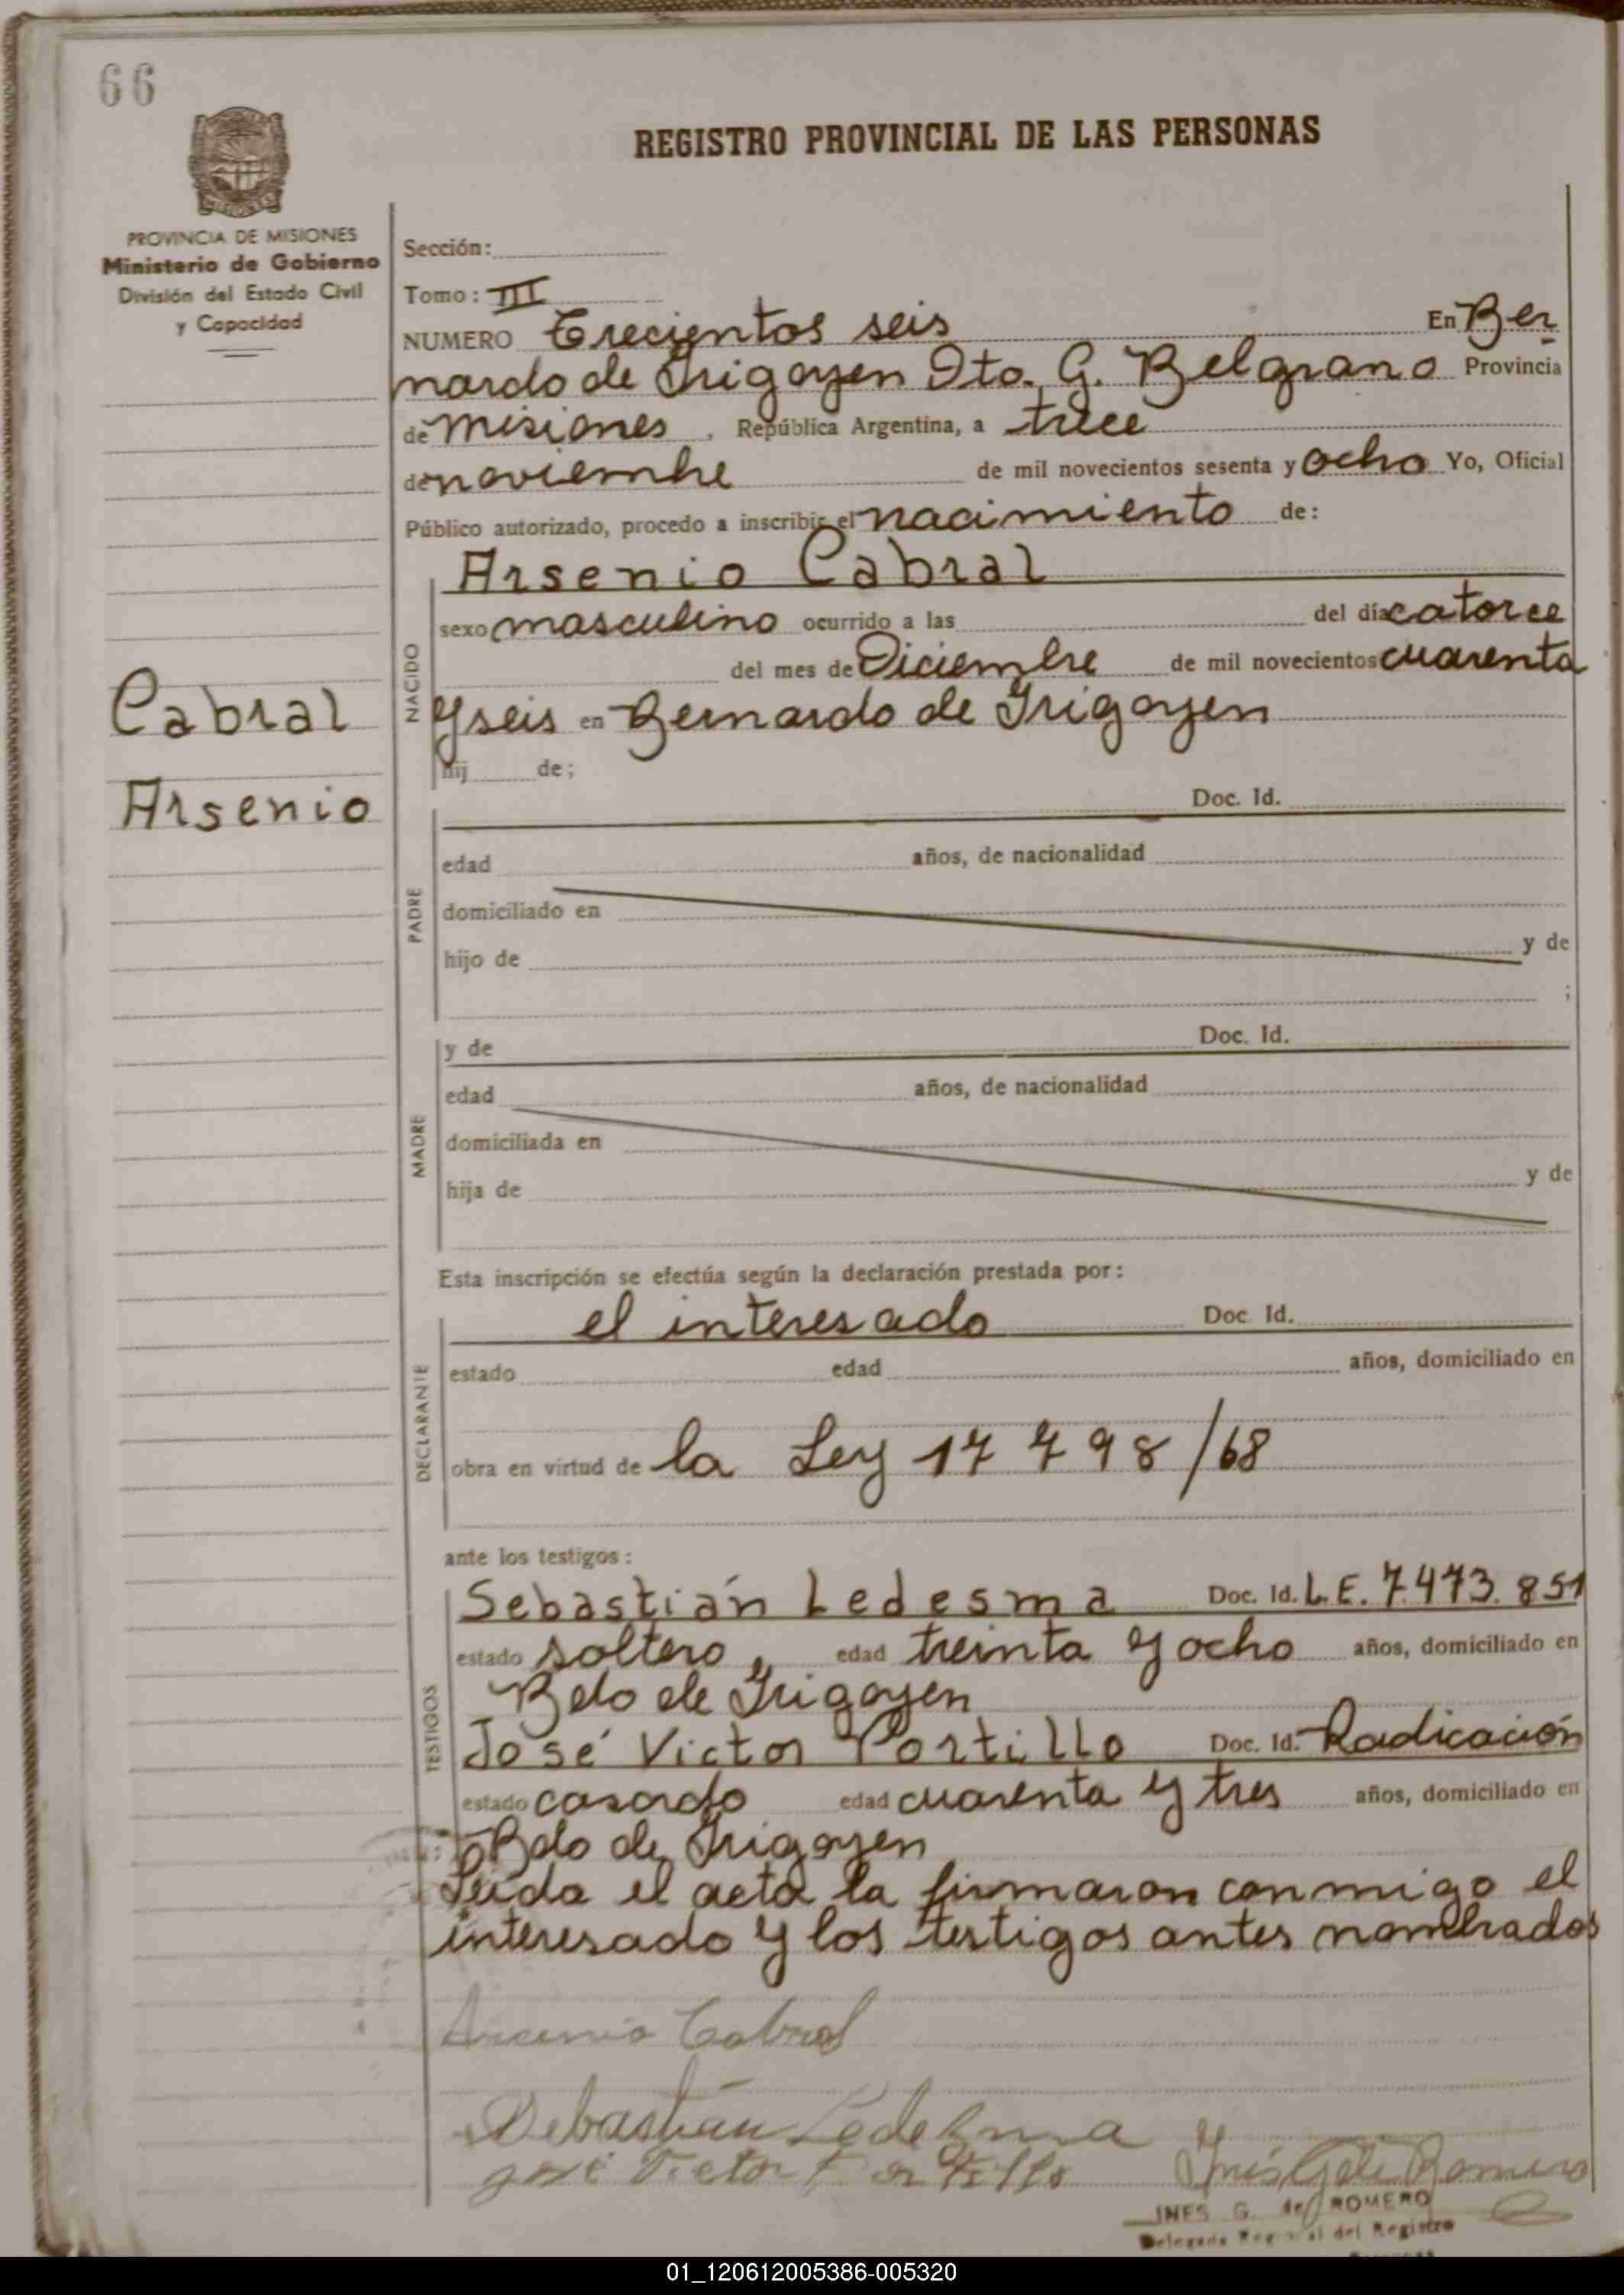 66
REGISTRO PROVINCIAL DE LAS PERSONAS
MISIONES
PROVINCIA DE MISIONES
Ministerio de Gobierno
División del Estado Civil
y Capacidad
Sección:
Tomo: III
NUMERO Trecientos seis En Ber
nardo de Irigoyen Dto. G. Belgrano Provincia
de Misiones, República Argentina, a trece
de noviembre de mil novecientos sesenta y ocho Yo, Oficial
Público autorizado, procedo a inscribir el nacimiento de:
Arsenio Cabral
NACIDO
sexo masculino ocurrido a las del día catorce
del mes de Diciembre de mil novecientos cuarenta
y seis en Bernardo de Irigoyen
hij de;
Cabral
Arsenio
Doc. Id.
PADRE
edad años, de nacionalidad
domiciliado en
hijo de y de
;
MADRE
y de Doc. Id.
edad años, de nacionalidad
domiciliada en
hija de y de
Esta inscripción se efectúa según la declaración prestada por:
DECLARANTE
el interesado Doc. Id.
estado edad años, domiciliado en
obra en virtud de la Ley 17 798/68
ante los testigos:
TESTIGOS
Sebastián Ledesma Doc. Id. L.E. 7.473.851
estado soltero, edad treinta y ocho años, domiciliado en
Bdo de Irigoyen
José Victor Portillo Doc. Id. Radicación
estado casado edad cuarenta y tres años, domiciliado en
Bdo de Irigoyen
Leida el acta la firmaron conmigo el
interesado y los testigos antes nombrados
Arcenio Cabral
Sebastián Ledesma
José Victor Portillo
Inés G. de Romero
INES G. de ROMERO
Delegada Regional del Registro
01_120612005386-005320